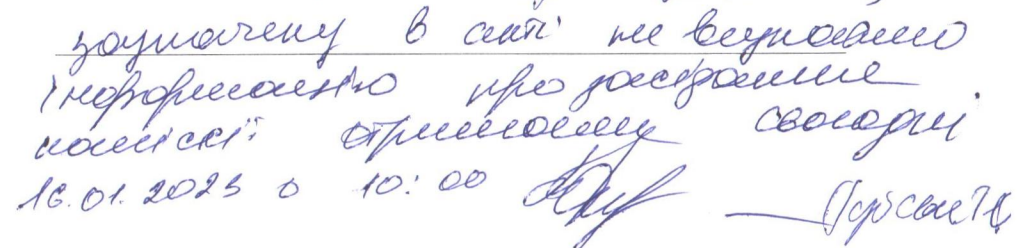 зазначену в акті не визнаємо
інформацію про засідання
комісії отримали сьогодні
16.01.2023 о 10:00